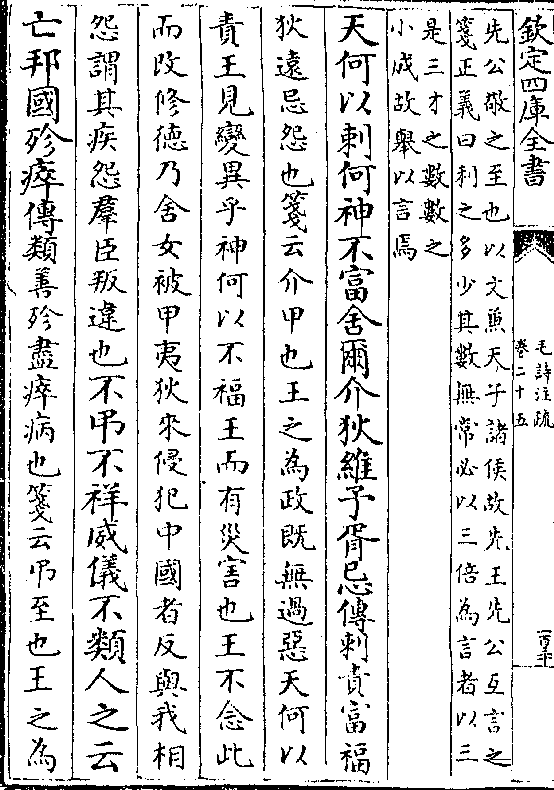 欽定四庫全書
毛詩注疏
卷二十五
先公敬之至也以文兼天子諸侯故先王先公互言之
箋正義曰利之多少其數無常必以三倍為言者以三
是三才之數數之
小成故舉以言焉
天何以刺何神不富舍爾介狄維予胥忌傳刺責富福
狄遠忌怨也箋云介甲也王之為政既無過惡天何以
責王見變異乎神何以不福王而有災害也王不念此
而改修徳乃舍女被甲夷狄來侵犯中國者反與我相
怨謂其疾怨羣臣叛違也不弔不祥威儀不類人之云
亡邦國殄瘁傳類善殄盡瘁病也箋云弔至也王之為